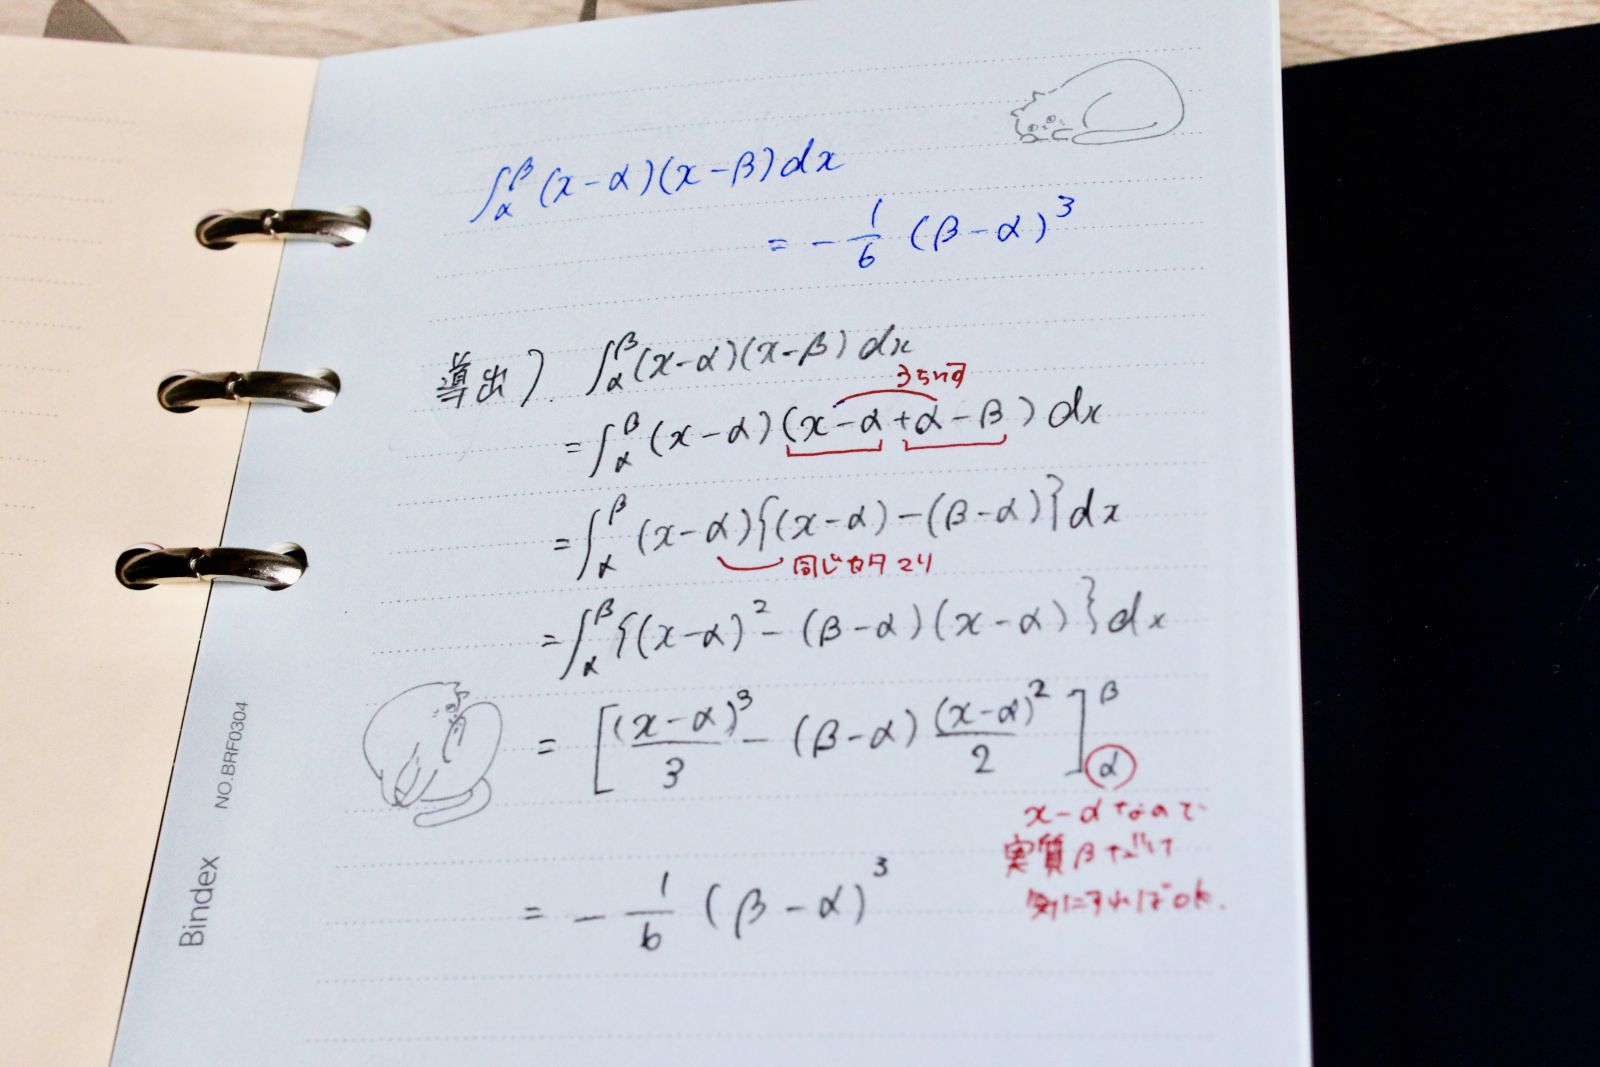 ∫_α^β (x-α)(x-β)dx
= -1/6 (β-α)^3
導出) ∫_α^β (x-α)(x-β)dx
= ∫_α^β (x-α)(x-α+α-β)dx
= ∫_α^β (x-α){(x-α)-(β-α)}dx
同じカタマリ
= ∫_α^β {(x-α)^2-(β-α)(x-α)}dx
= [(x-α)^3/3 - (β-α)(x-α)^2/2]_α^β
x-αなので
実質βだけ
気にすればOK.
= -1/6 (β-α)^3
Bindex NO.BRF0304